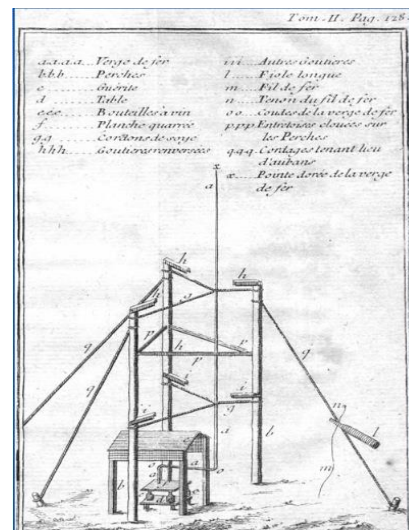 Tom. II. Pag. 128.
a.a.a.a.....Verge de fer
b.b.b.......Perches
c...........Guérite
d...........Table
e.e.e.......Bouteilles à vin
f...........Planche quarrée
g.g.........Cordons de soye
h.h.h.......Goutieres renversées
i.i.i.......Autres Goutieres
l...........Fiole longue
m...........Fil de fer
n...........Tenon du fil de fer
o o.........Coudes de la verge de fer
p.p.p. Entretoises clouées sur
les Perches
q.q.q. Cordages tenant lieu
d'aubans
x......Pointe dorée de la verge
de fer
x
a
h
h
g
q
p
h
p
p
q
q
i
i
i
g
n
l
b
a
m
b
a
o
o
d